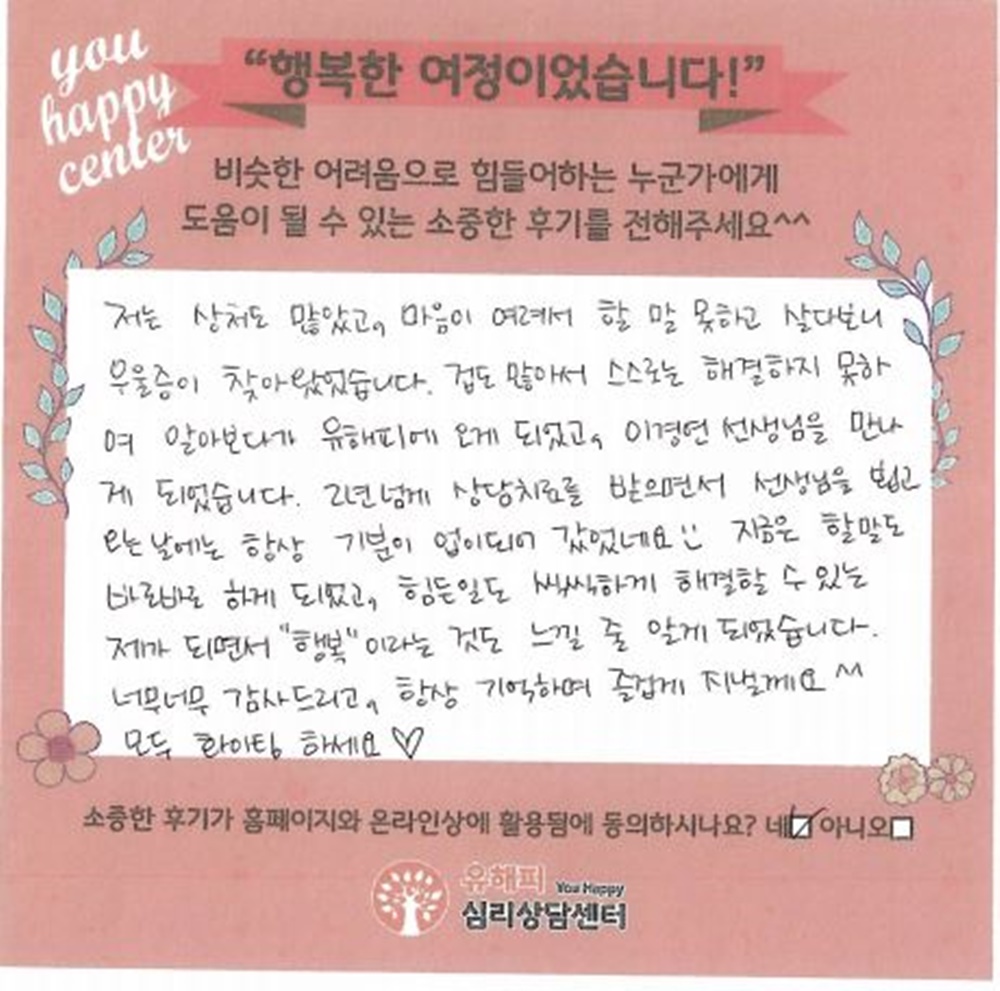 you
happy
center
“행복한 여정이었습니다!”
비슷한 어려움으로 힘들어하는 누군가에게
도움이 될 수 있는 소중한 후기를 전해주세요^^
저는 상처도 많았고, 마음이 여려서 할 말 못하고 살다보니
우울증이 찾아왔었습니다. 겁도 많아서 스스로는 해결하지 못하
여 알아보다가 유해피에 오게 되었고, 이경연 선생님을 만나
게 되었습니다. 2년넘게 상담치료를 받으면서 선생님을 뵙고
오는날에는 항상 기분이 업이되어 갔었네요 지금은 할말도
바로바로 하게 되었고, 힘든일도 씩씩하게 해결할 수 있는
제가 되면서 "행복"이라는 것도 느낄 줄 알게 되었습니다.
너무너무 감사드리고, 항상 기억하며 즐겁게 지낼게요 ^^
모두 화이팅 하세요 ♡
소중한 후기가 홈페이지와 온라인상에 활용됨에 동의하시나요? 네☑ 아니오□
유해피 You Happy
심리상담센터